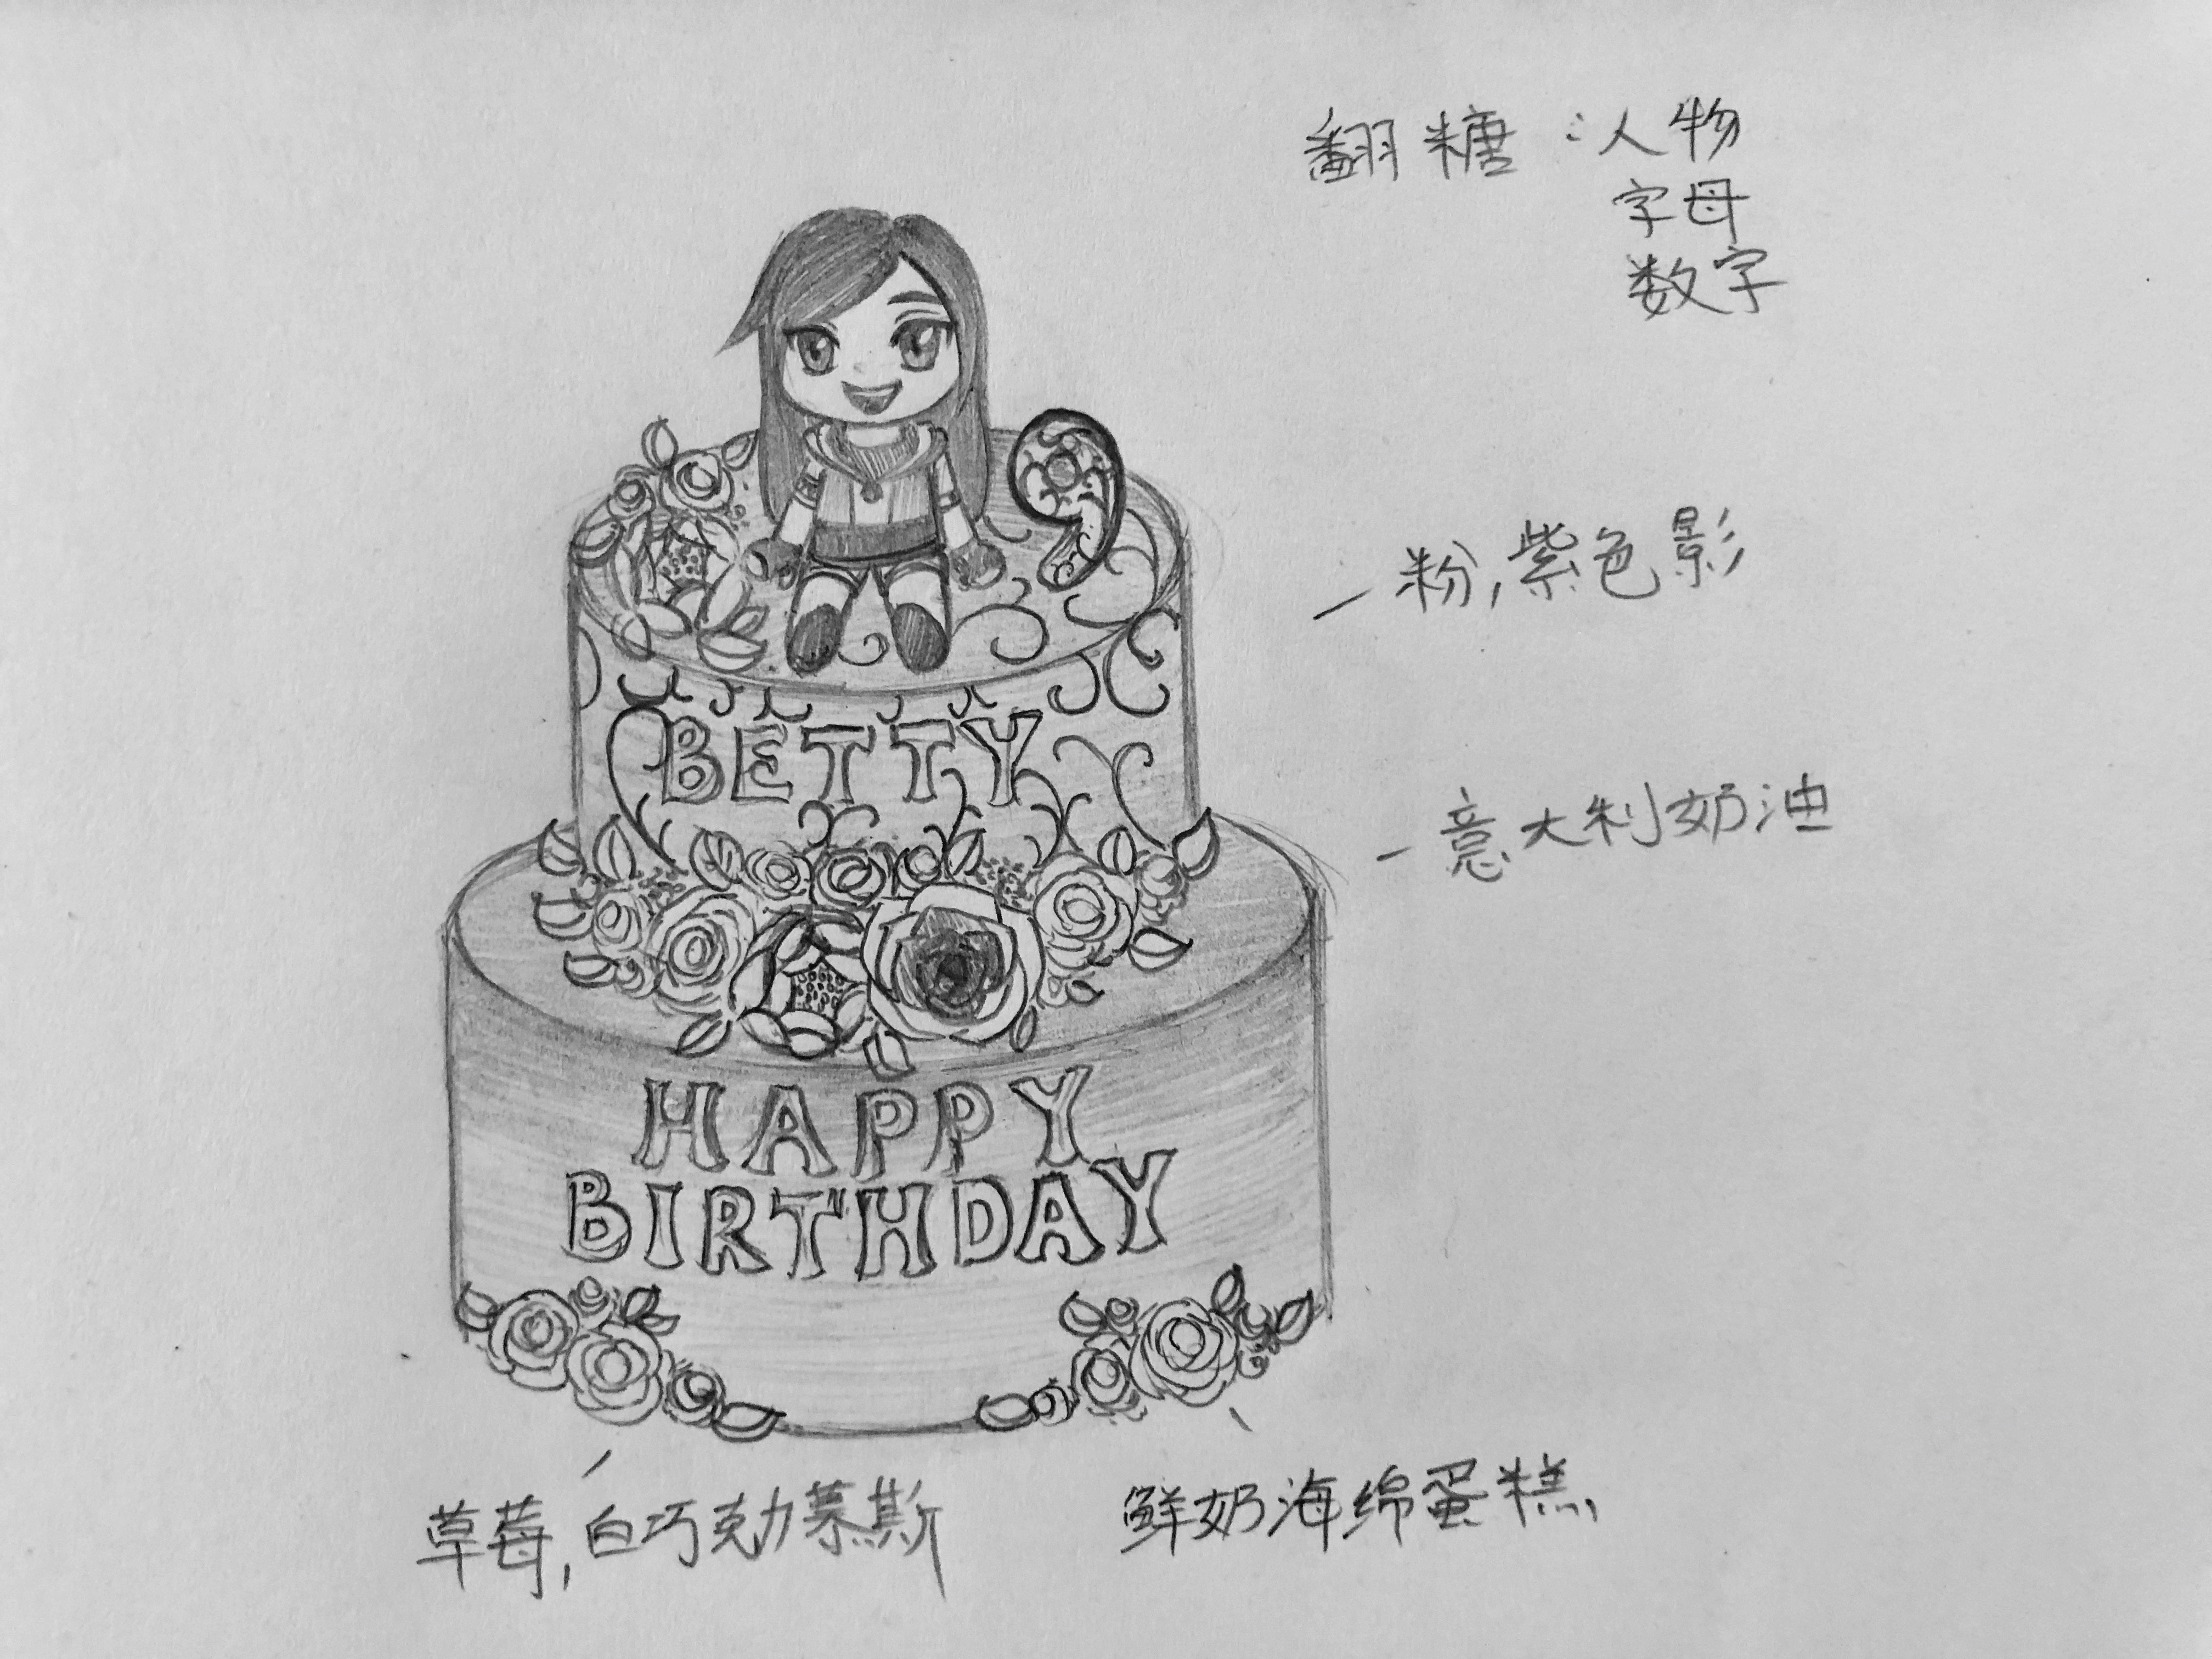 翻糖:人物
字母
数字
9
一粉,紫色影
BETTY
一意大利奶油
HAPPY
BIRTHDAY
草莓,白巧克力慕斯
鲜奶海绵蛋糕,